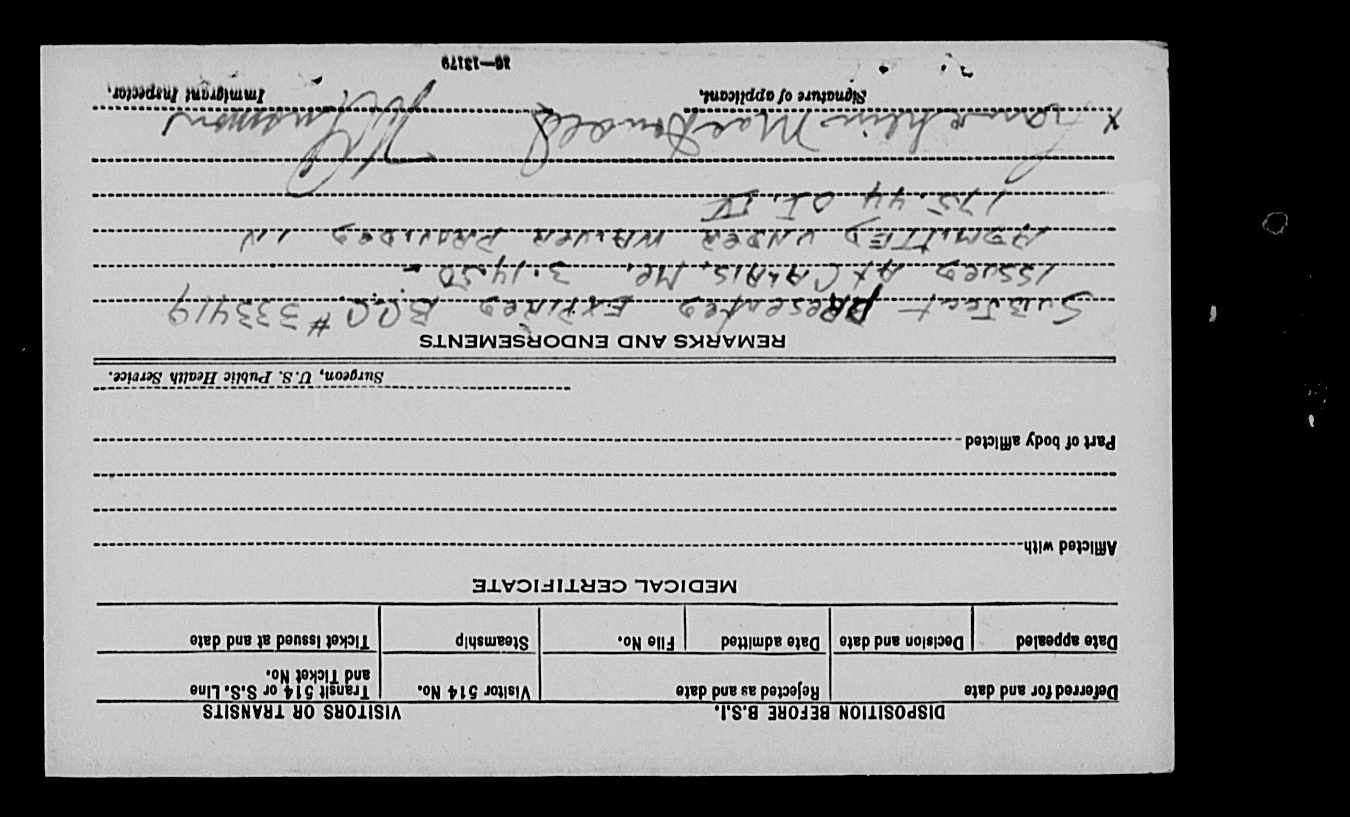 DISPOSITION BEFORE B.S.I. VISITORS OR TRANSITS
Deferred for and date Rejected as and date Visitor 514 No. Transit 514 or S.S. Line and Ticket No.
Date appealed Decision and date Date admitted File No. Steamship Ticket issued at and date
MEDICAL CERTIFICATE
Afflicted with
Part of body afflicted
Surgeon, U.S. Public Health Service.
REMARKS AND ENDORSEMENTS
SUBJect PResented EXPIRED B.C.C. # 333419
ISSUED At CALAIS, Me. 3.14.50 -
ADMITTED UNDER WAIVER PROVIDED IN
175.44 OI. IV
x MacDonald
Signature of applicant. Immigrant Inspector.
16—13179